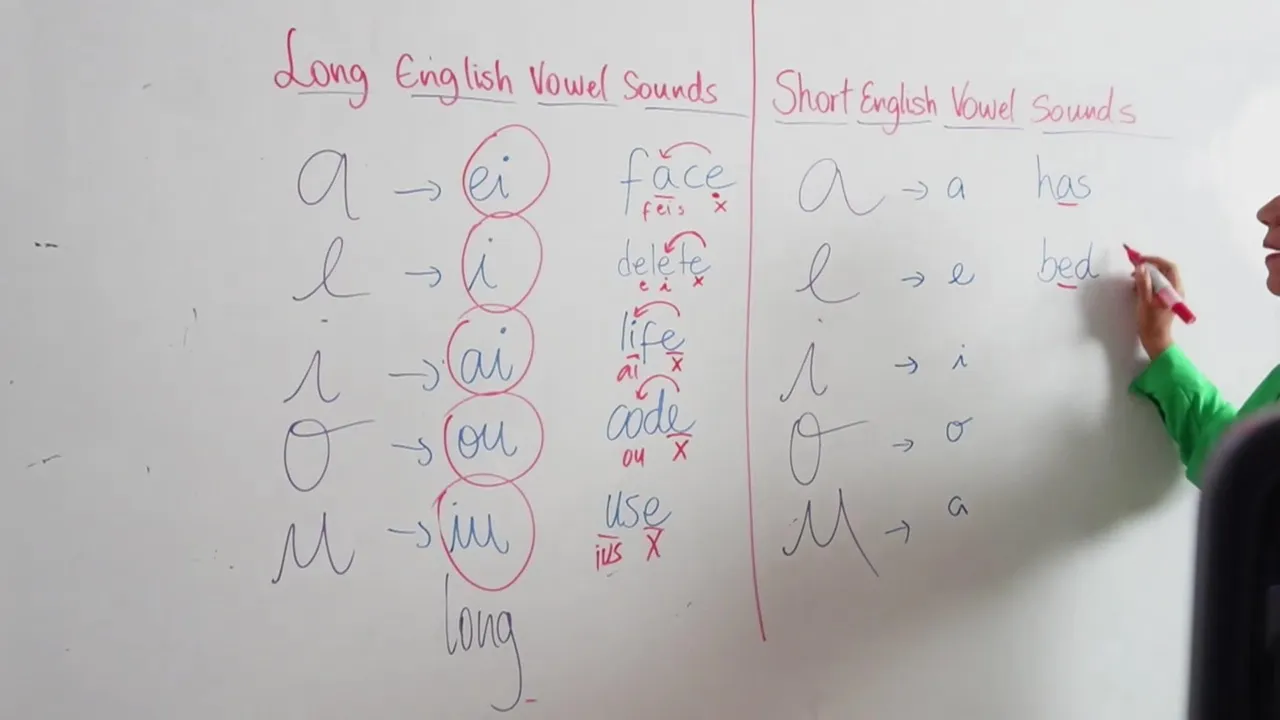 Long English Vowel Sounds
a → ei face
feis x
e → i delete
e i x
i → ai life
ai x
o → ou code
ou x
u → iu use
ius x
long
Short English Vowel Sounds
a → a has
e → e bed
i → i
o → o
u → a